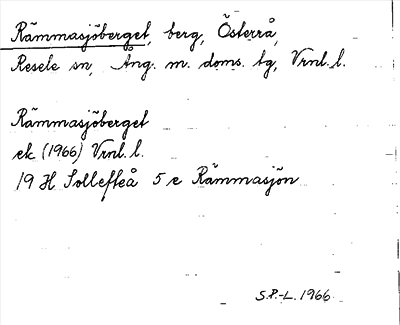 Rämmasjöberget, berg, Österrå,
Resele sn, Ång. m. doms. tg, Vrnl. l.
Rämmasjöberget
ek (1966) Vrnl. l.
19 H Sollefteå 5 e Rämmasjön
S.P.-L. 1966